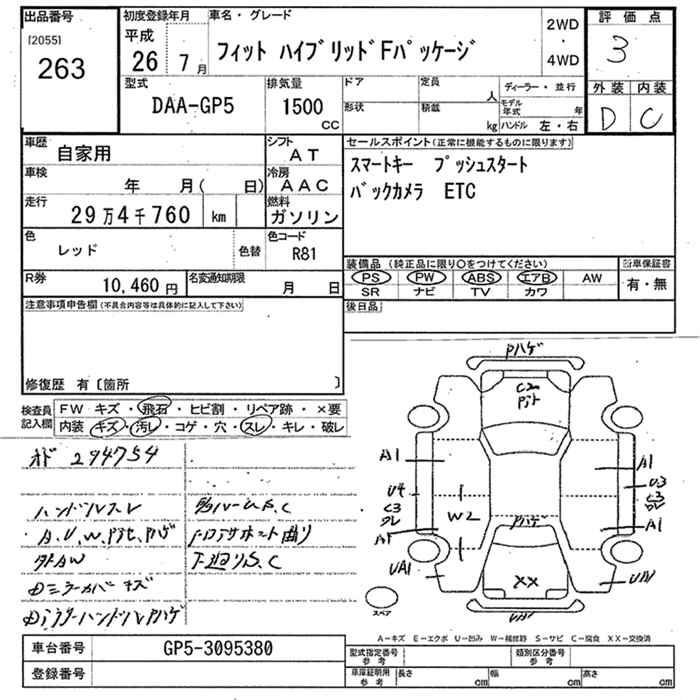 出品番号
[2055]
263
初度登録年月
平成
26 7月
車名・グレード
フィット ハイブリッドFパッケージ
2WD
・
4WD
評価点
3
外装 内装
D C
型式
DAA-GP5
排気量
1500
CC
ドア
形状
定員
人
積載
kg
ディーラー・並行
モデル年式 年
ハンドル 左・右
車歴
自家用
シフト
AT
車検
年 月( 日)
冷房
AAC
走行
29万4千760 km
燃料
ガソリン
色
レッド
色替
色コード
R81
R券
10,460円
名変通知期限
月 日
セールスポイント(正常に機能するものに限ります)
スマートキー プッシュスタート
バックカメラ ETC
装備品 (純正品に限り○をつけてください)
PS PW ABS エアB AW
SR ナビ TV カワ
車保証書
有・無
後日品
注意事項申告欄(不具合内容等は具体的に記入して下さい)
修復歴 有〔箇所 〕
検査員記入欄
FW キズ・飛石・ヒビ割・リペア跡・×要
内装 キズ・汚レ・コゲ・穴・スレ・キレ・破レ
294754
ハンドルスレ
A、U、W、
外AW
Dミラーカバーキズ
S、C
Pハゲ
C2
A1
A1
U4
C3
W2
U3
C3
A1
A1
Pハゲ
UA1
××
スペア
A-キズ E-エクボ U-凹み W-補修跡 S-サビ C-腐食 XX-交換済
車台番号
GP5-3095380
登録番号
型式指定番号 参考
類別区分番号 参考
車庫証明用 参考
長さ cm
幅 cm
高さ cm